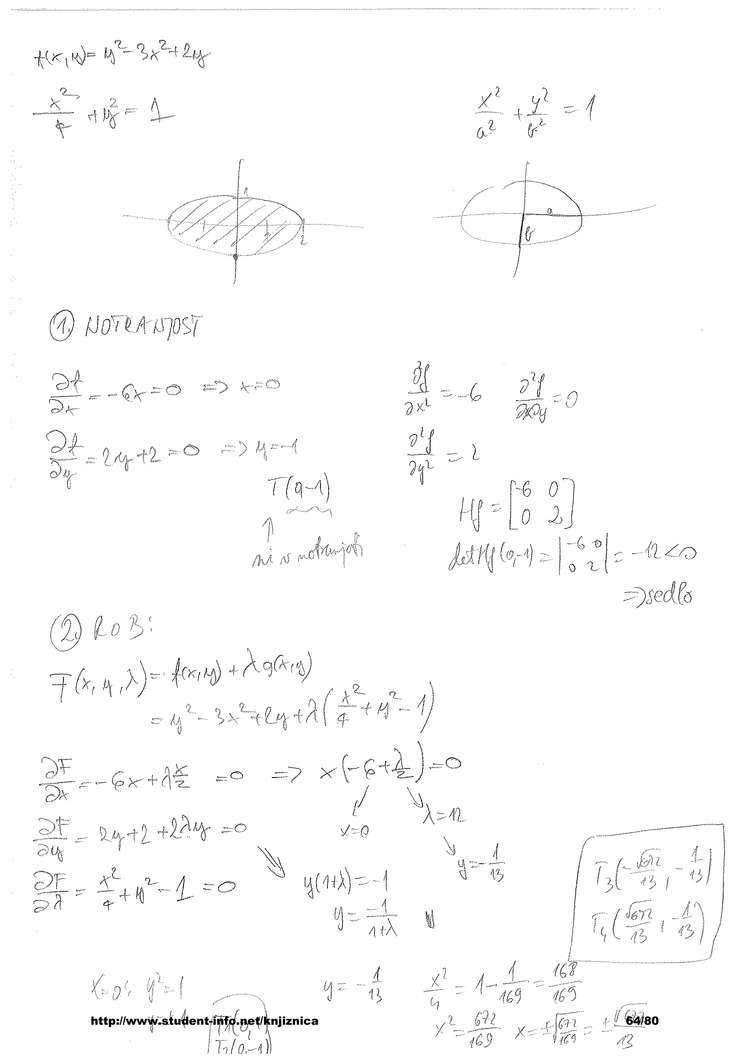 f(x,y) = y² - 3x² + 2y
x²/4 + y² = 1
x²/a² + y²/b² = 1
1
1 1 2
a
b
1. NOTRANJOST
∂f/∂x = -6x = 0 => x=0
∂f/∂y = 2y + 2 = 0 => y=-1
T(0,-1)
↑
ni v notranjosti
∂²f/∂x² = -6 ∂²f/∂x∂y = 0
∂²f/∂y² = 2
Hf = [-6 0
0 2]
det Hf(0,-1) = |-6 0
0 2| = -12 < 0
=> sedlo
2. ROB:
F(x, y, λ) = f(x,y) + λg(x,y)
= y² - 3x² + 2y + λ(x²/4 + y² - 1)
∂F/∂x = -6x + λ x/2 = 0 => x(-6 + λ/2) = 0
x=0 λ=12
∂F/∂y = 2y + 2 + 2λy = 0
y = -1/13
∂F/∂λ = x²/4 + y² - 1 = 0
y(1+λ) = -1
y = -1/(1+λ)
T₃(-√672/13, -1/13)
T₄(√672/13, -1/13)
x=0: y² = 1
T₂(0,-1)
y = -1/13
x²/4 = 1 - 1/169 = 168/169
x² = 672/169 x = ±√(672/169) = ±√672/13
http://www.student-info.net/knjiznica 64/80